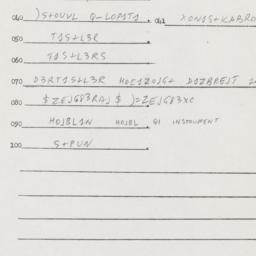 040 )S+OUVL Q-LOPI7I. 041 XONIS+KABRO
050 TIS+L3R
060 TIS+L3RS
070 D3RTIS+L3R HOEIZOJG+ DIZBREJT
080 $ZEJG83RAJ$ )=ZEJG83XC
090 HOJBLIN HOJBL QI INSTRUMENT
200 S+PUN